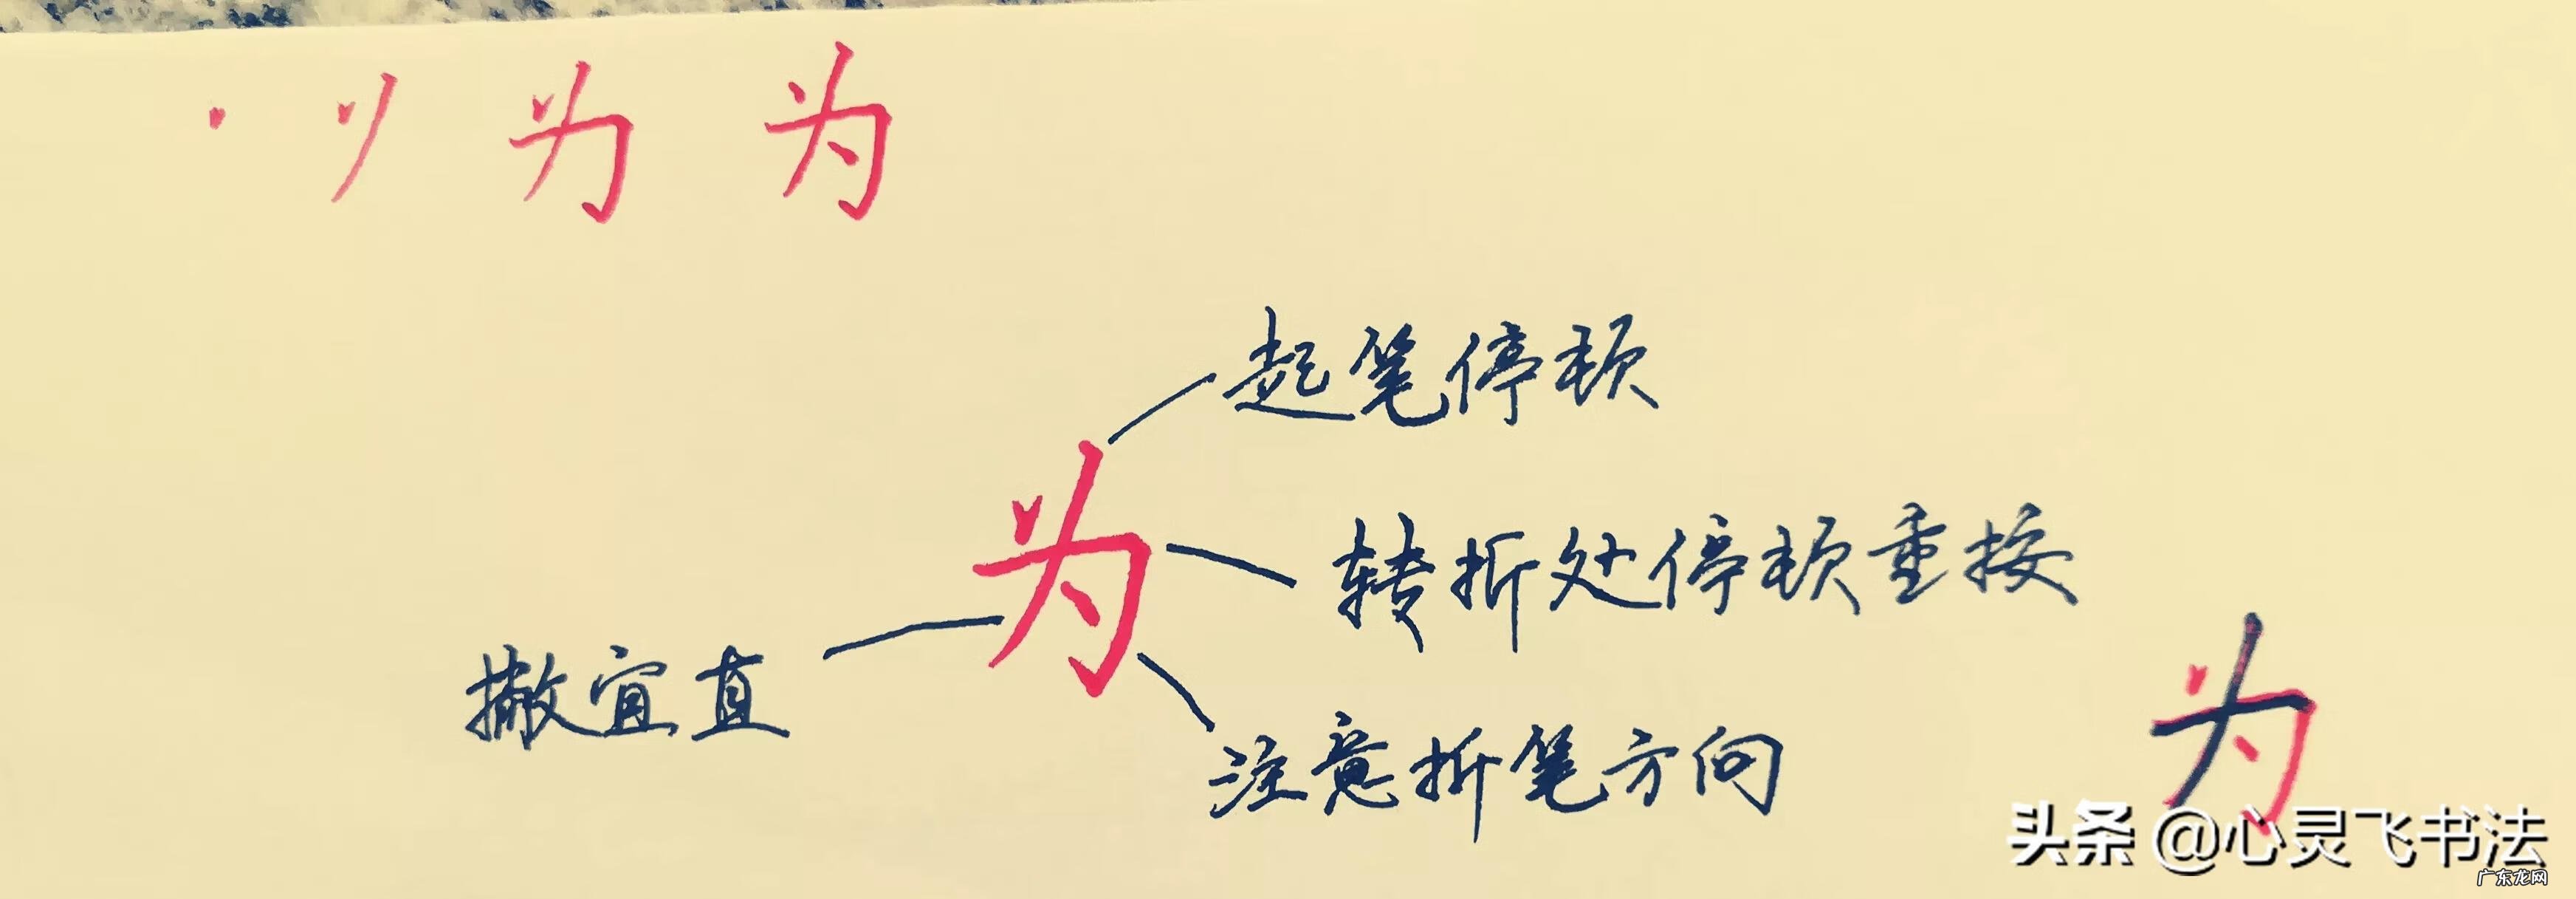 丶 丷 为 为
起笔停顿
为
转折处停顿重按
撇宜直
注意折笔方向
为
头条 @心灵飞书法
广东龙网